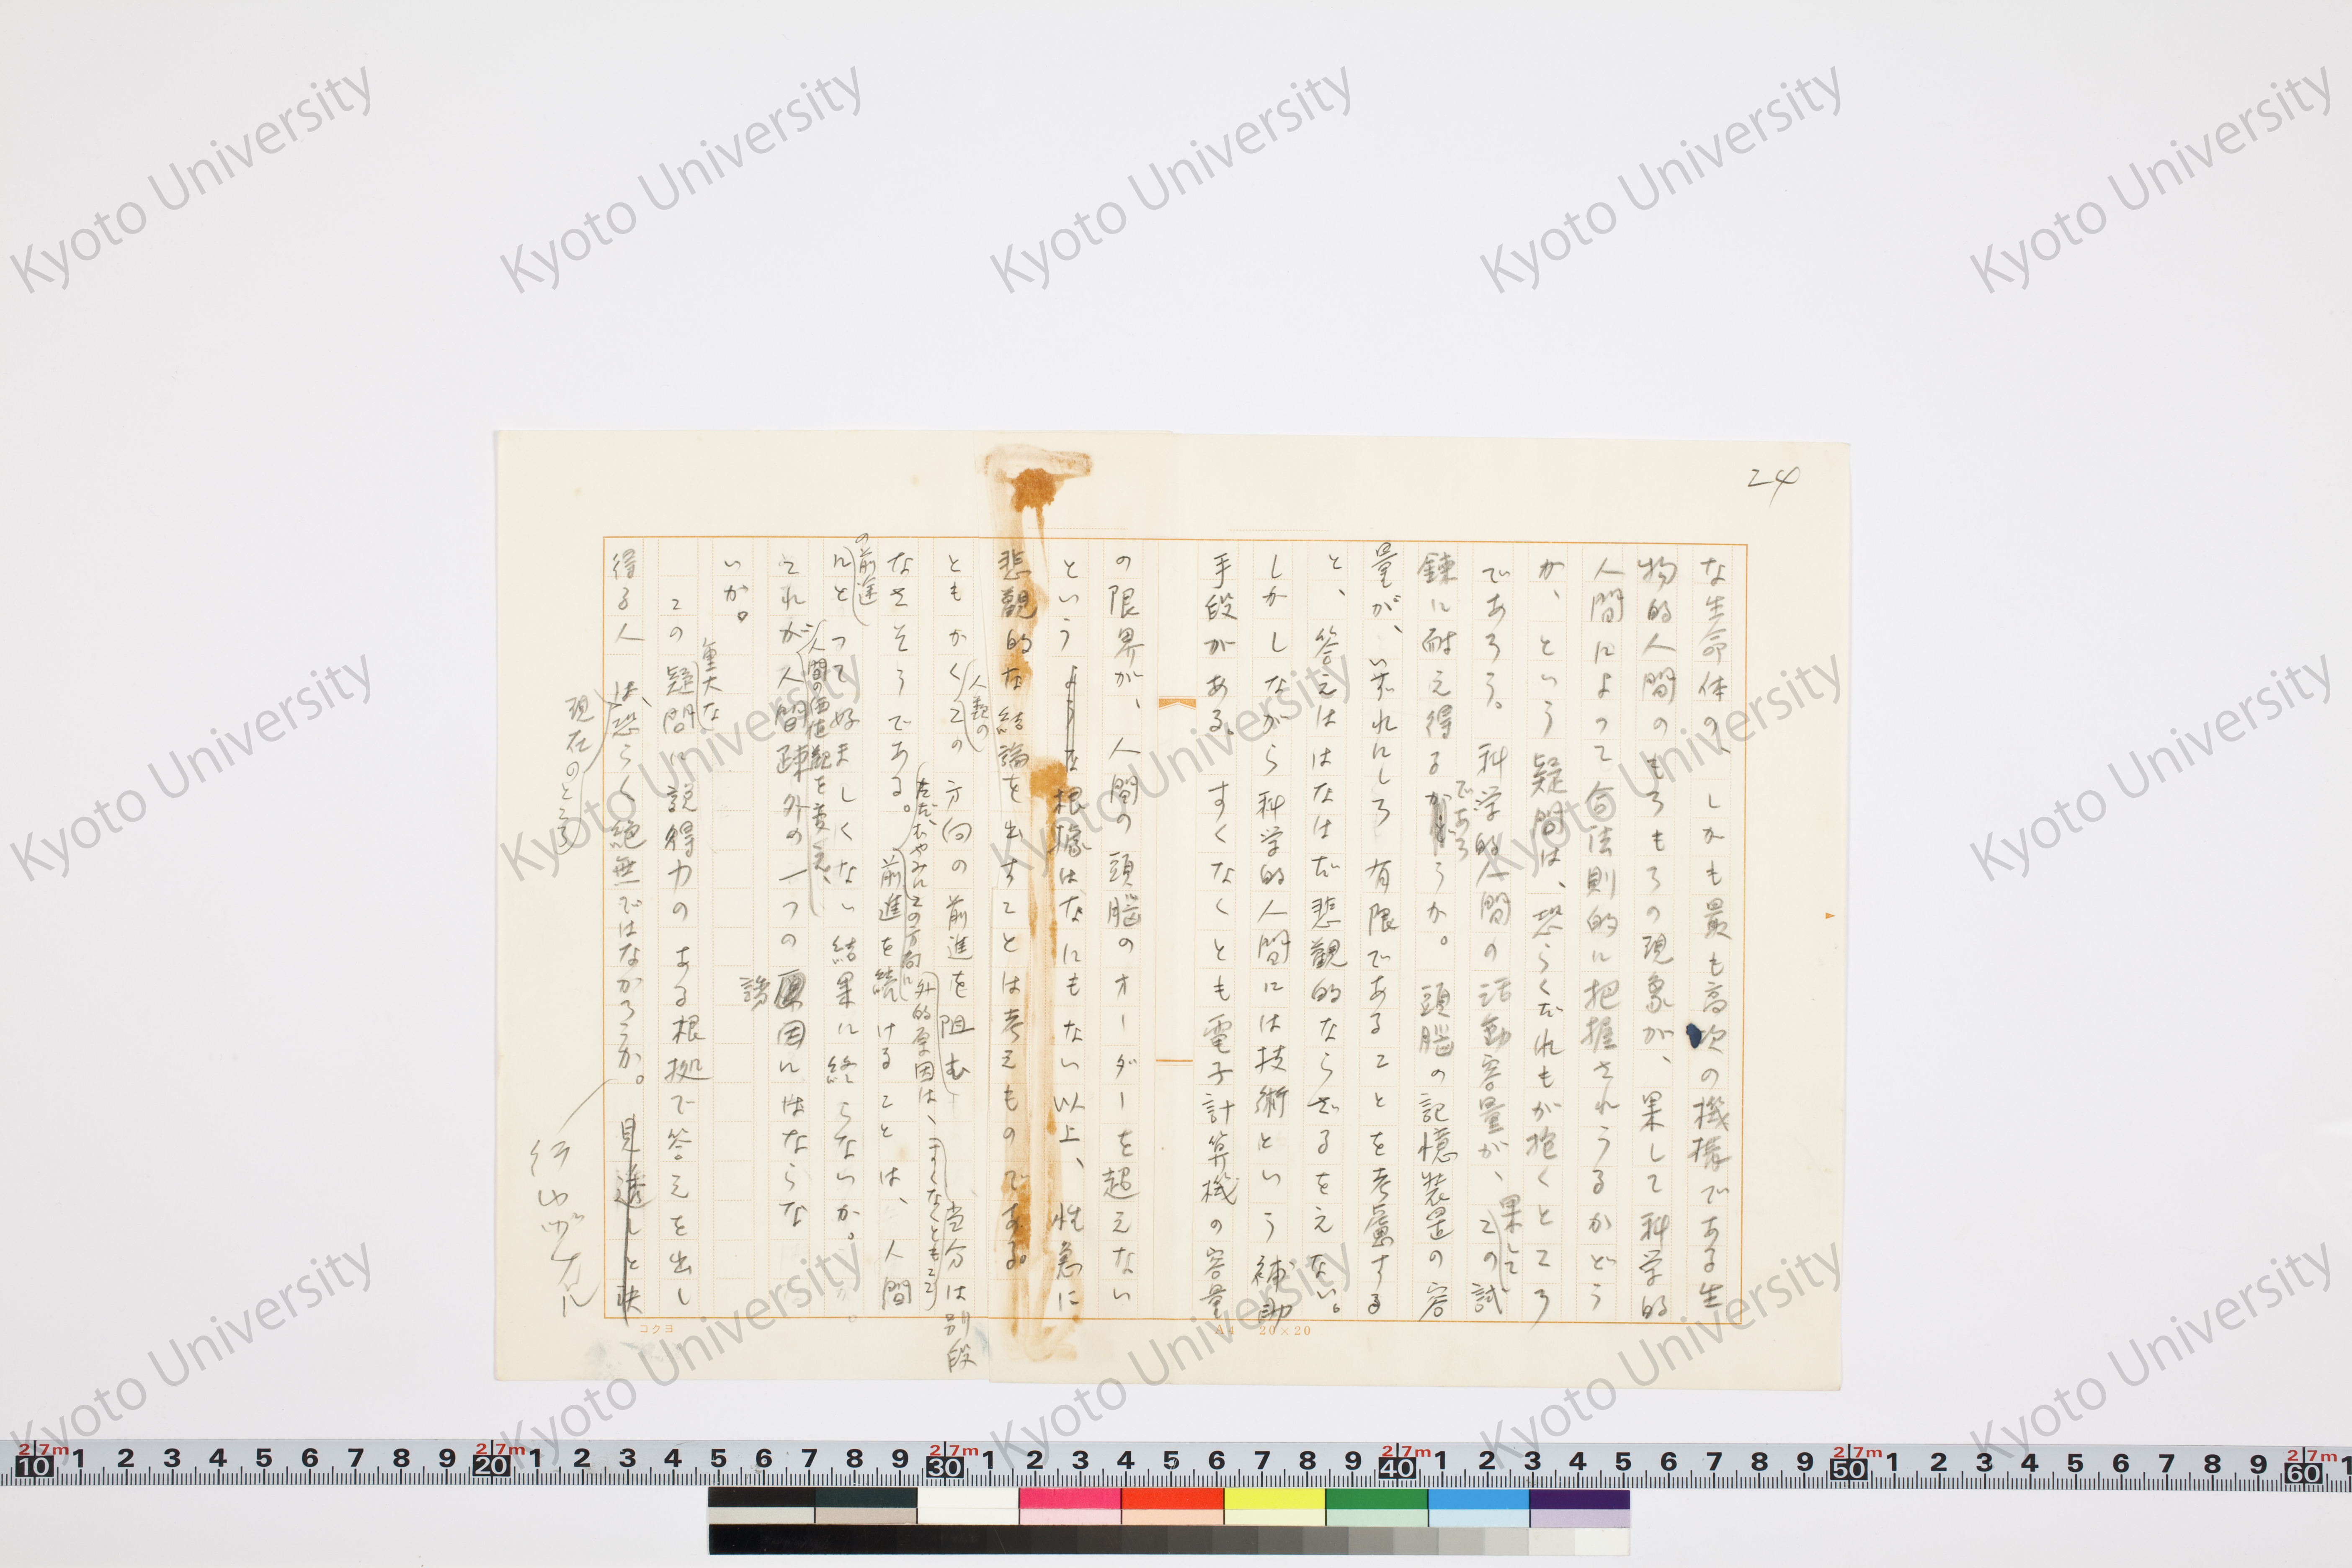 24
な生命体の、しかも最も高次の機構である生
物的人間のもろもろの現象が、果して科学的
人間によって合法則的に把握されうるかどう
か、という疑問は、恐らくだれもが抱くところ
であろう。科学的人間の活動容量が、果してこの試
錬に耐え得るであろうか。頭脳の記憶装置の容
量が、いずれにしろ有限であることを考慮する
と、答えははなはだ悲観的ならざるをえない。
しかしながら科学的人間には技術という補助
手段がある。すくなくとも電子計算機の容量
の限界が、人間の頭脳のオーダーを超えない
という根據はなにもない以上、性急に
悲観的な結論を出すことは考えものである。
ともかく人類のこの方向の前進を阻む外的原因は、(すくなくとも)当分は別段
なさそうである。ただ、むやみにこの方向に前進を続けることは、人間
の前途にとって好ましくない結果に終らないか。
人間の価値観を変え、
それが人間疎外の一つの誘因にはならな
いか。
この重大な疑問に説得力のある根拠で答えを出し
得る人は、現在のところ恐らく絶無ではなかろうか。
見透しと
コクヨ
A4 20×20
Kyoto University